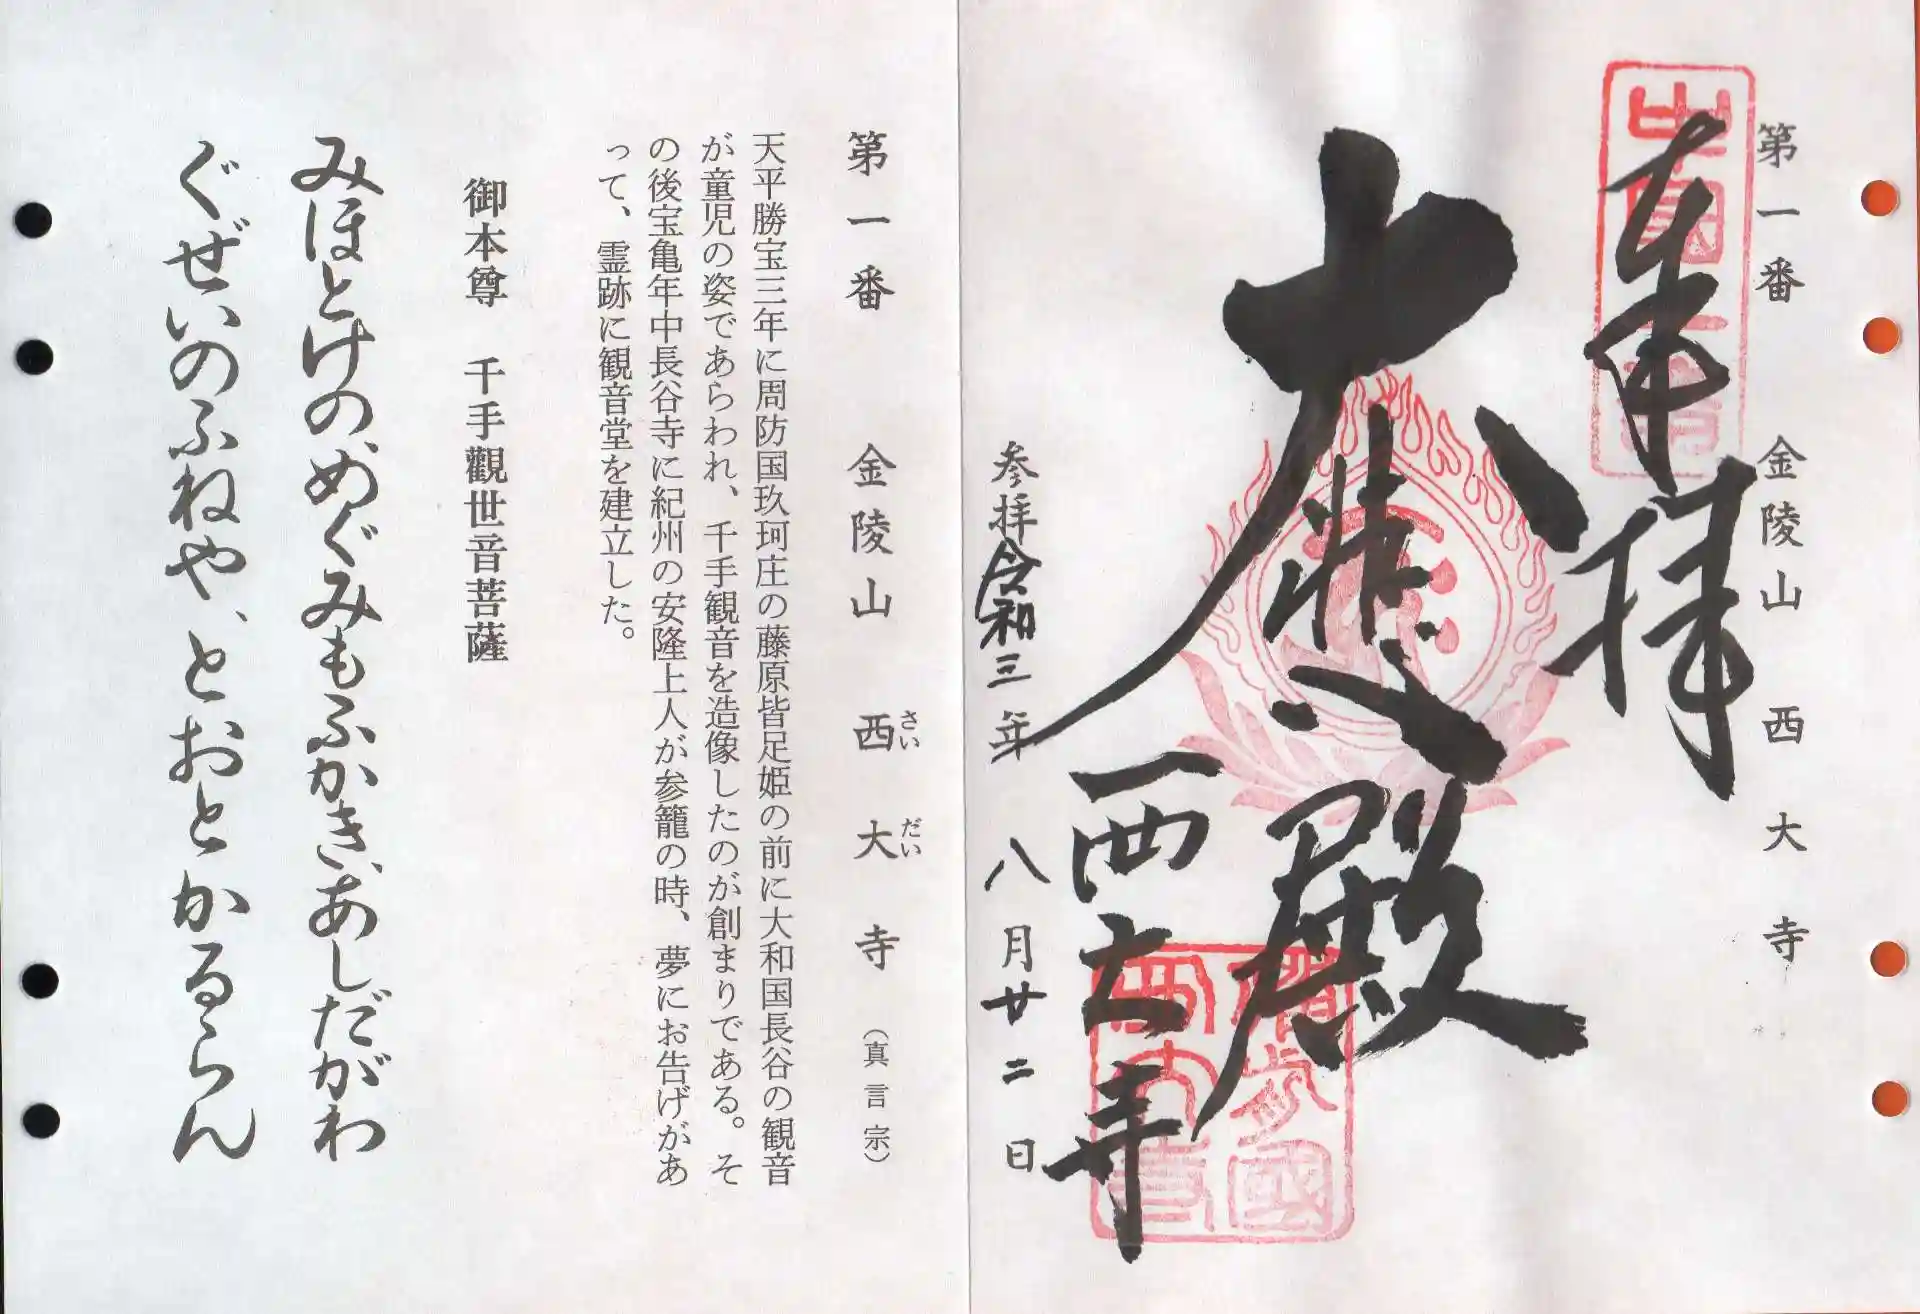 第一番 金陵山 西大寺
奉拝
大悲殿
西大寺
参拝令和三年 八月廿二日
第一番 金陵山 西大寺 (真言宗)
さい だい
天平勝宝三年に周防国玖珂庄の藤原皆足姫の前に大和国長谷の観音
が童児の姿であらわれ、千手観音を造像したのが創まりである。そ
の後宝亀年中長谷寺に紀州の安隆上人が参籠の時、夢にお告げがあ
って、霊跡に観音堂を建立した。
御本尊 千手觀世音菩薩
みほとけの、めぐみもふかき、あしだがわ
ぐぜいのふねや、とおとかるらん